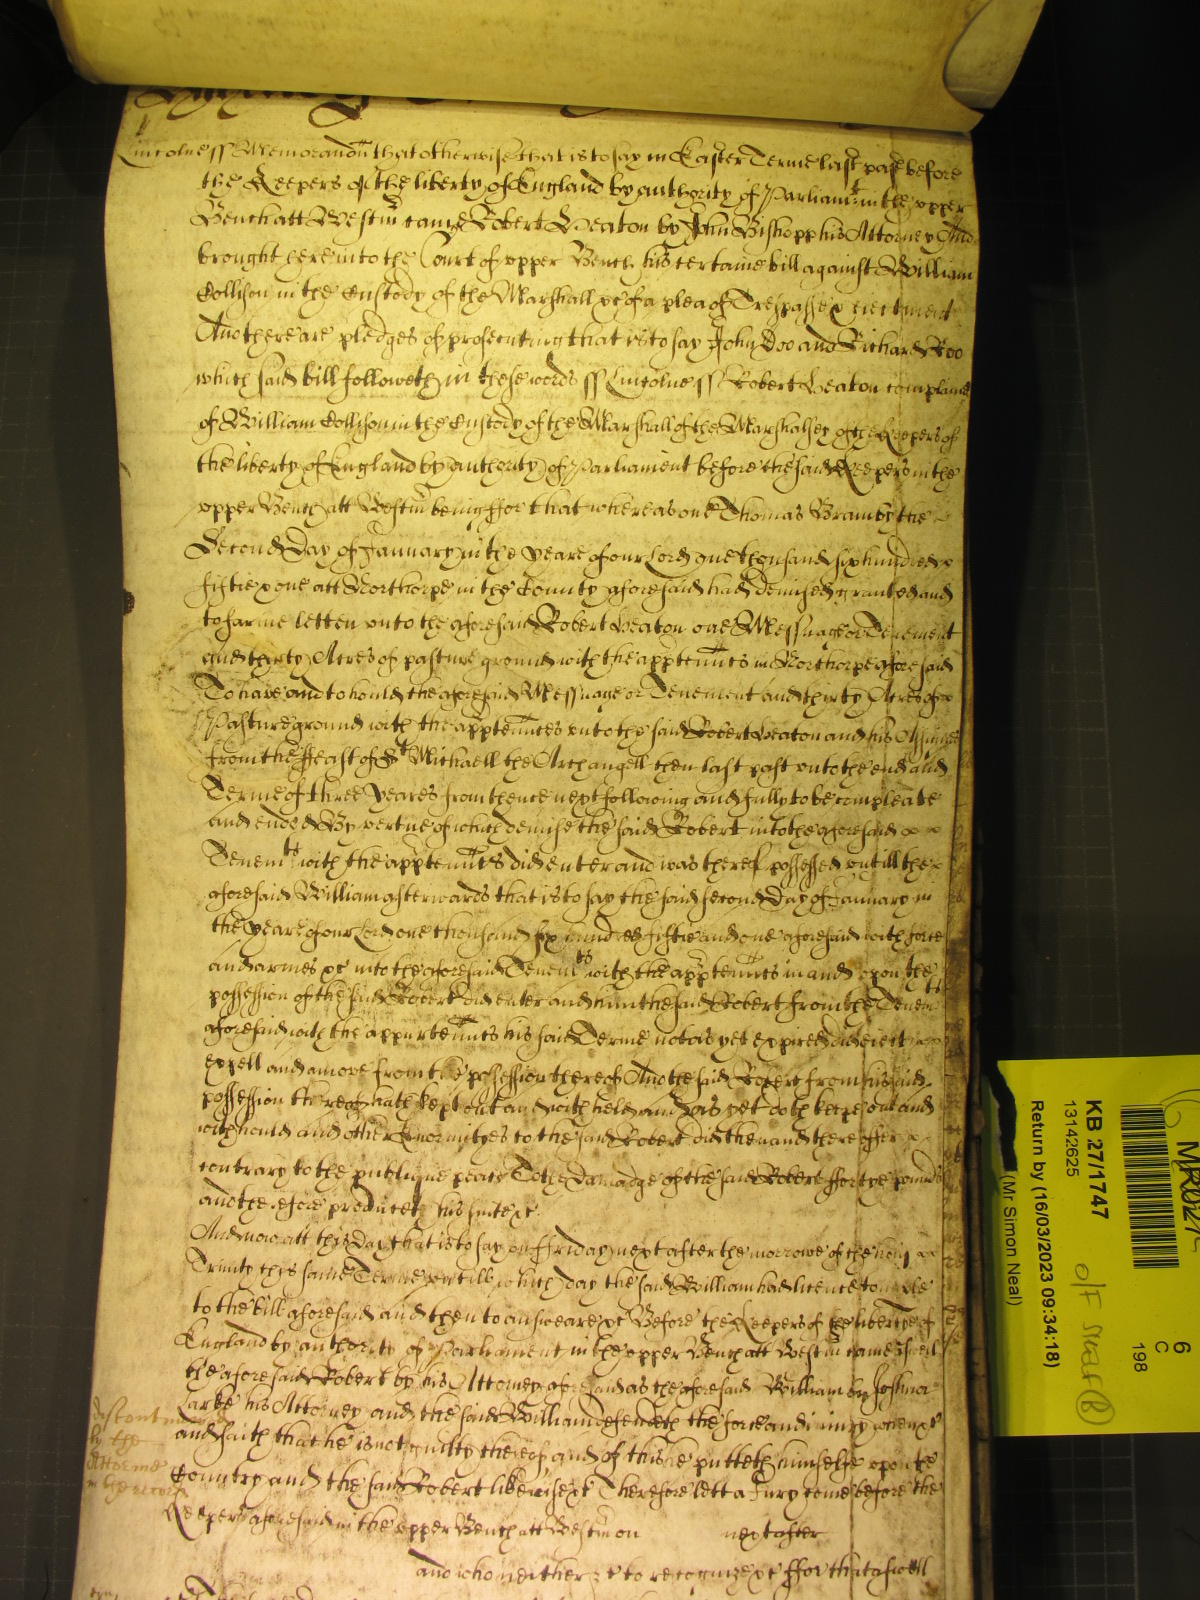 Lincolne ss Memorandū that otherwise that is to say in Easter Terme last past before
the Keepers of the liberty of England by authority of Parliamt in the upper
Bench att Westm̄ came Robert Beaton by John Bishopp his Attorney And
brought here into the Court of upper Bench his certaine bill against William
Collison in the Custody of the Marshall &c of a plea of Trespasse & eiectment
And there are pledges of prosecuting that is to say John Doo and Richard Roo
which said bill followeth in these words ss Lincolne ss Robert Beaton complaines
of William Collison in the Custody of the Marshall of the Marshalsey of the Keepers of
the liberty of England by authority of Parliament before the said Keepers in the
upper Bench att Westm̄ being ffor that whereas one Thomas Bramby the
Second Day of January in the yeare of our Lord one thousand six hundred &
fiftie & one att Northorpe in the County aforesaid had demised granted and
to farme letten unto the aforesaid Robert Beaton one Messuage or Tenement
and thirty Acres of pasture ground with the apptennts in Northorpe aforesaid
To have and to hould the aforesaid Messuage or Tenement and thirty Acres of
Pasture ground with the apptennces unto the said Robert Beaton and his Assignes
from the ffeast of St Michaell the Archangell then last past unto the end and
Terme of three yeares from thence next following and fully to be compleate
and ended By vertue of which demise the said Robert into the aforesaid
Tenemts with the apptennts did enter and was thereof possessed untill the
aforesaid William afterwards that is to say the said second Day of January in
the yeare of our Lord one thousand six hundred fiftie and one aforesaid with force
and armes &c into the aforesaid Tenemts with the apptennts in and upon the
possession of the said Robert did enter and him the said Robert from the Tenemts
aforesaid with the appurtennts his said Terme not as yet expired did eiect
expell and amove from the possession thereof And the said Robert from his said
possession thereof hath kept out and withheld and as yet doth keepe out and
withhould and other Enormityes to the said Robert did then and there offer
contrary to the publique peace To the damadge of the said Robert ffortye pounds
and therefore produceth his suite &c
And now att this Day that is to say on ffriday next after the morrowe of the holy
Trinity this same Terme untill which day the said William had licence to imparle
to the bill aforesaid and then to answeare &c Before the Keepers of the libertye of
England by authority of Parliament in the upper Bench att Westm̄ came aswell
the aforesaid Robert by his Attorney aforesaid as the aforesaid William by Joshua
Larke his Attorney and the said William defendeth the force and iniury when &c
and saith that he is not guilty thereof and of this he putteth himselfe upon the
Country and the said Robert likewise &c Therefore lett a Jury come before the
Keepers aforesaid in the upper Bench att Westm̄ on next after
and who neither &c to recognize &c ffor that aswell
by the
Attorne
in the record
KB 27/1747
13142625
Return by (16/03/2023 09:34:18)
(Mr Simon Neal)
6
C
198